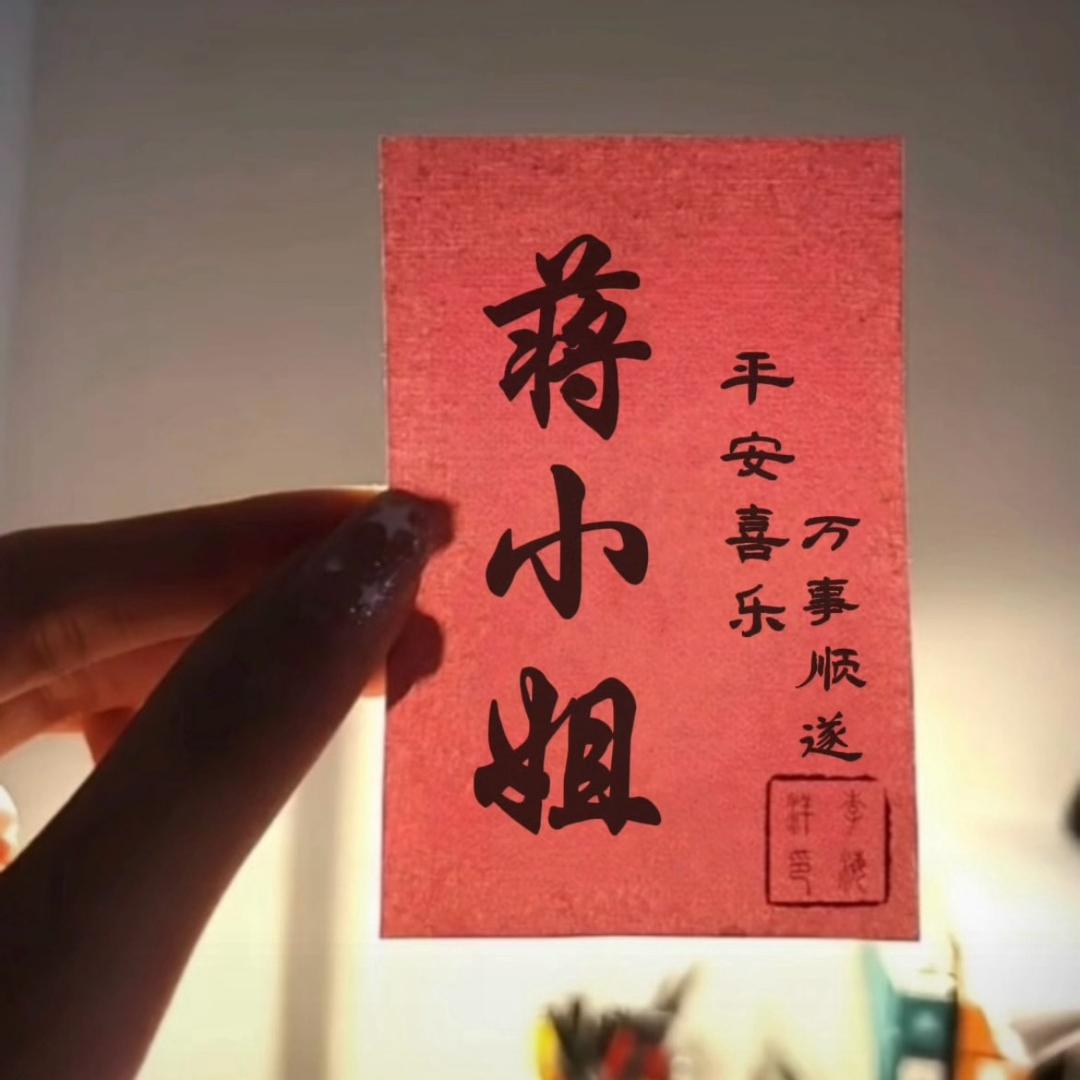 蒋小姐
平安喜乐
万事顺遂